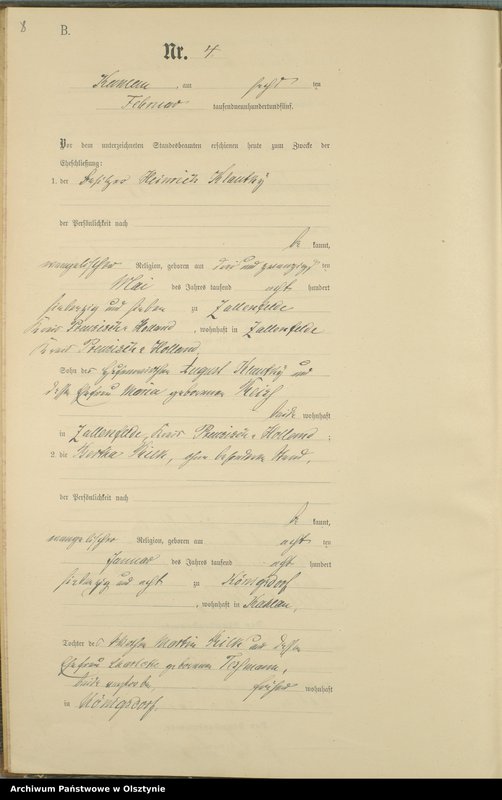 8
B.
Nr. 4
Kahlau, am sechs ten
Februar tausendneunhundertundfünf.
Vor dem unterzeichneten Standesbeamten erschienen heute zum Zwecke der
Eheschließung:
1. der Besitzer Heinrich Klautky
der Persönlichkeit nach
be kannt,
evangelischer Religion, geboren am drei und zwanzigsten
Mai des Jahres tausend acht hundert
siebenzig und sieben zu Zallenfelde
Kreis Preussisch Holland, wohnhaft in Zallenfelde
Kreis Preussisch Holland,
Sohn des August Klautky und
dessen Ehefrau Maria geborenen
beide wohnhaft
in Zallenfelde, Kreis Preussisch Holland;
2. die Bertha, ohne besonderen Stand,
der Persönlichkeit nach
be kannt,
evangelischer Religion, geboren am acht ten
Januar des Jahres tausend acht hundert
siebenzig und acht zu Königsdorf
, wohnhaft in Kahlau,
Tochter des Martin und dessen
Ehefrau geborenen
beide verstorben, früher wohnhaft
in Königsdorf.
Archiwum Państwowe w Olsztynie